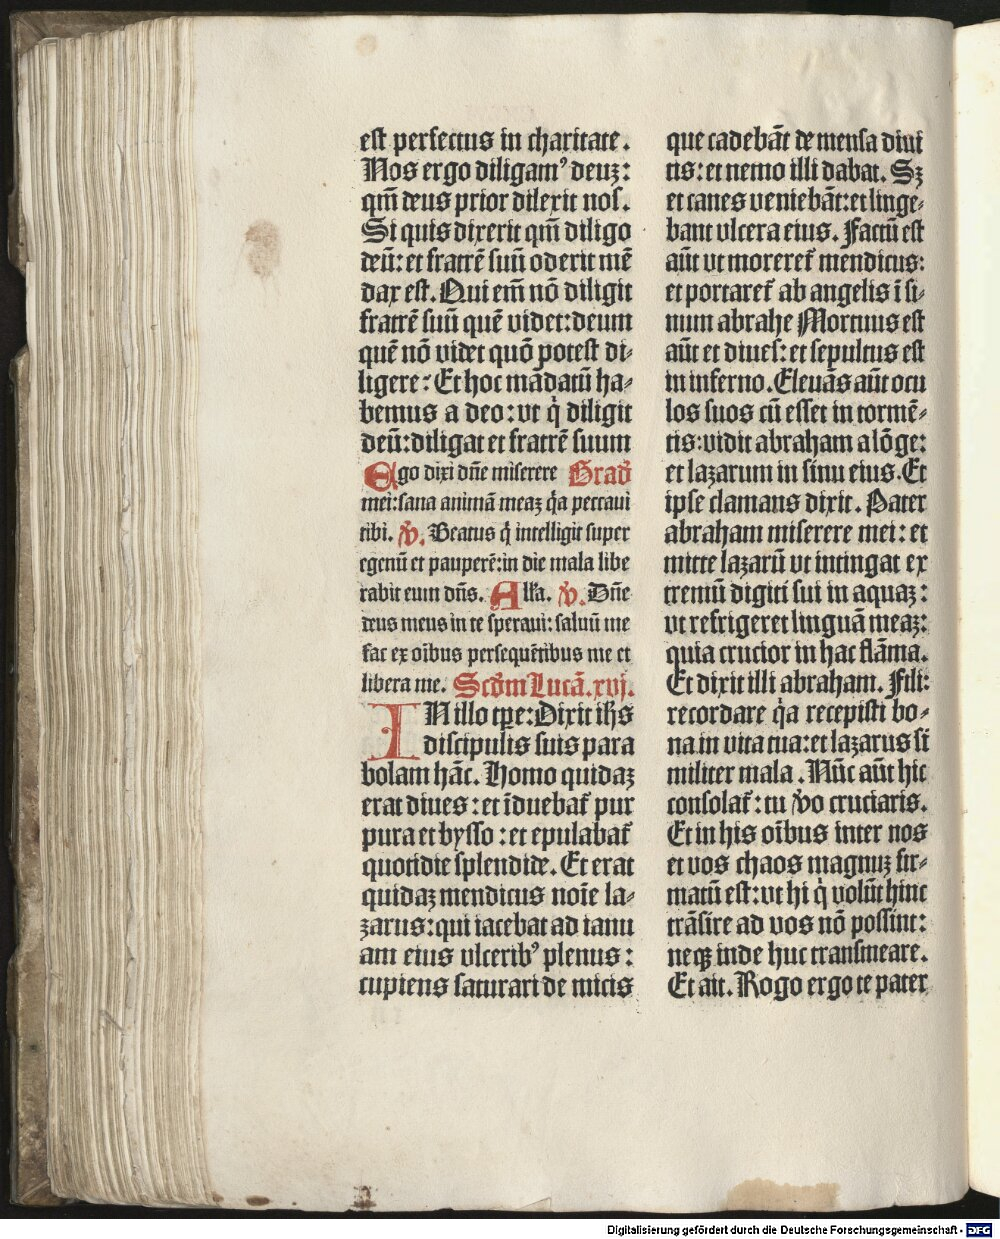 est perfectus in charitate.
Nos ergo diligamꝰ deuꝫ:
qm̄ deus prior dilexit nos.
Si quis dixerit qm̄ diligo
deū: et fratrē suū oderit mē
dax est. Qui em̄ nō diligit
fratrē suū quē videt: deum
quē nō videt quō potest di⸗
ligere: Et hoc mādatū ha⸗
bemus a deo: vt q̇ diligit
deū: diligat et fratrē suum
Ego dixi dn̄e miserere Grad̄
mei: sana animā meaꝫ q̇a peccaui
tibi. ℣. Beatus q̇ intelligit super
egenū et pauperē: in die mala libe
rabit eum dn̄s. Alla. ℣. Dn̄e
deus meus in te speraui: saluū me
fac ex oībus persequētibus me et
libera me. Scd̄m Lucā. xvj.
IN illo tꝑe: Dixit ih̄s
discipulis suis para
bolam hāc. Homo quidaꝫ
erat diues: et īduebat᷑ pur
pura et bysso: et epulabat᷑
quotidie splendide. Et erat
quidaꝫ mendicus noīe la⸗
zarus: qui iacebat ad ianu
am eius vlceribꝰ plenus:
cupiens saturari de micis
que cadebāt de mensa diui
tis: et nemo illi dabat. Sꝫ
et canes veniebāt: et linge⸗
bant vlcera eius. Factū est
aūt vt moreret᷑ mendicus:
et portaret᷑ ab angelis ī si⸗
num abrahe Mortuus est
aūt et diues: et sepultus est
in inferno. Eleuās aūt ocu
los suos cū esset in tormē⸗
tis: vidit abraham a lōge:
et lazarum in sinu eius. Et
ipse clamans dixit. Pater
abraham miserere mei: et
mitte lazarū vt intingat ex
tremū digiti sui in aquaꝫ:
vt refrigeret linguā meaꝫ:
quia crucior in hac flāma.
Et dixit illi abraham. Fili:
recordare q̇a recepisti bo⸗
na in vita tua: et lazarus sī
militer mala. Nūc aūt hic
consolat᷑: tu v̄o cruciaris.
Et in his oībus inter nos
et vos chaos magnuꝫ fir⸗
matū est: vt hi q̇ volūt hinc
trāsire ad vos nō possint:
neqꝫ inde huc transmeare.
Et ait. Rogo ergo te pater
Digitalisierung gefördert durch die Deutsche Forschungsgemeinschaft - DFG